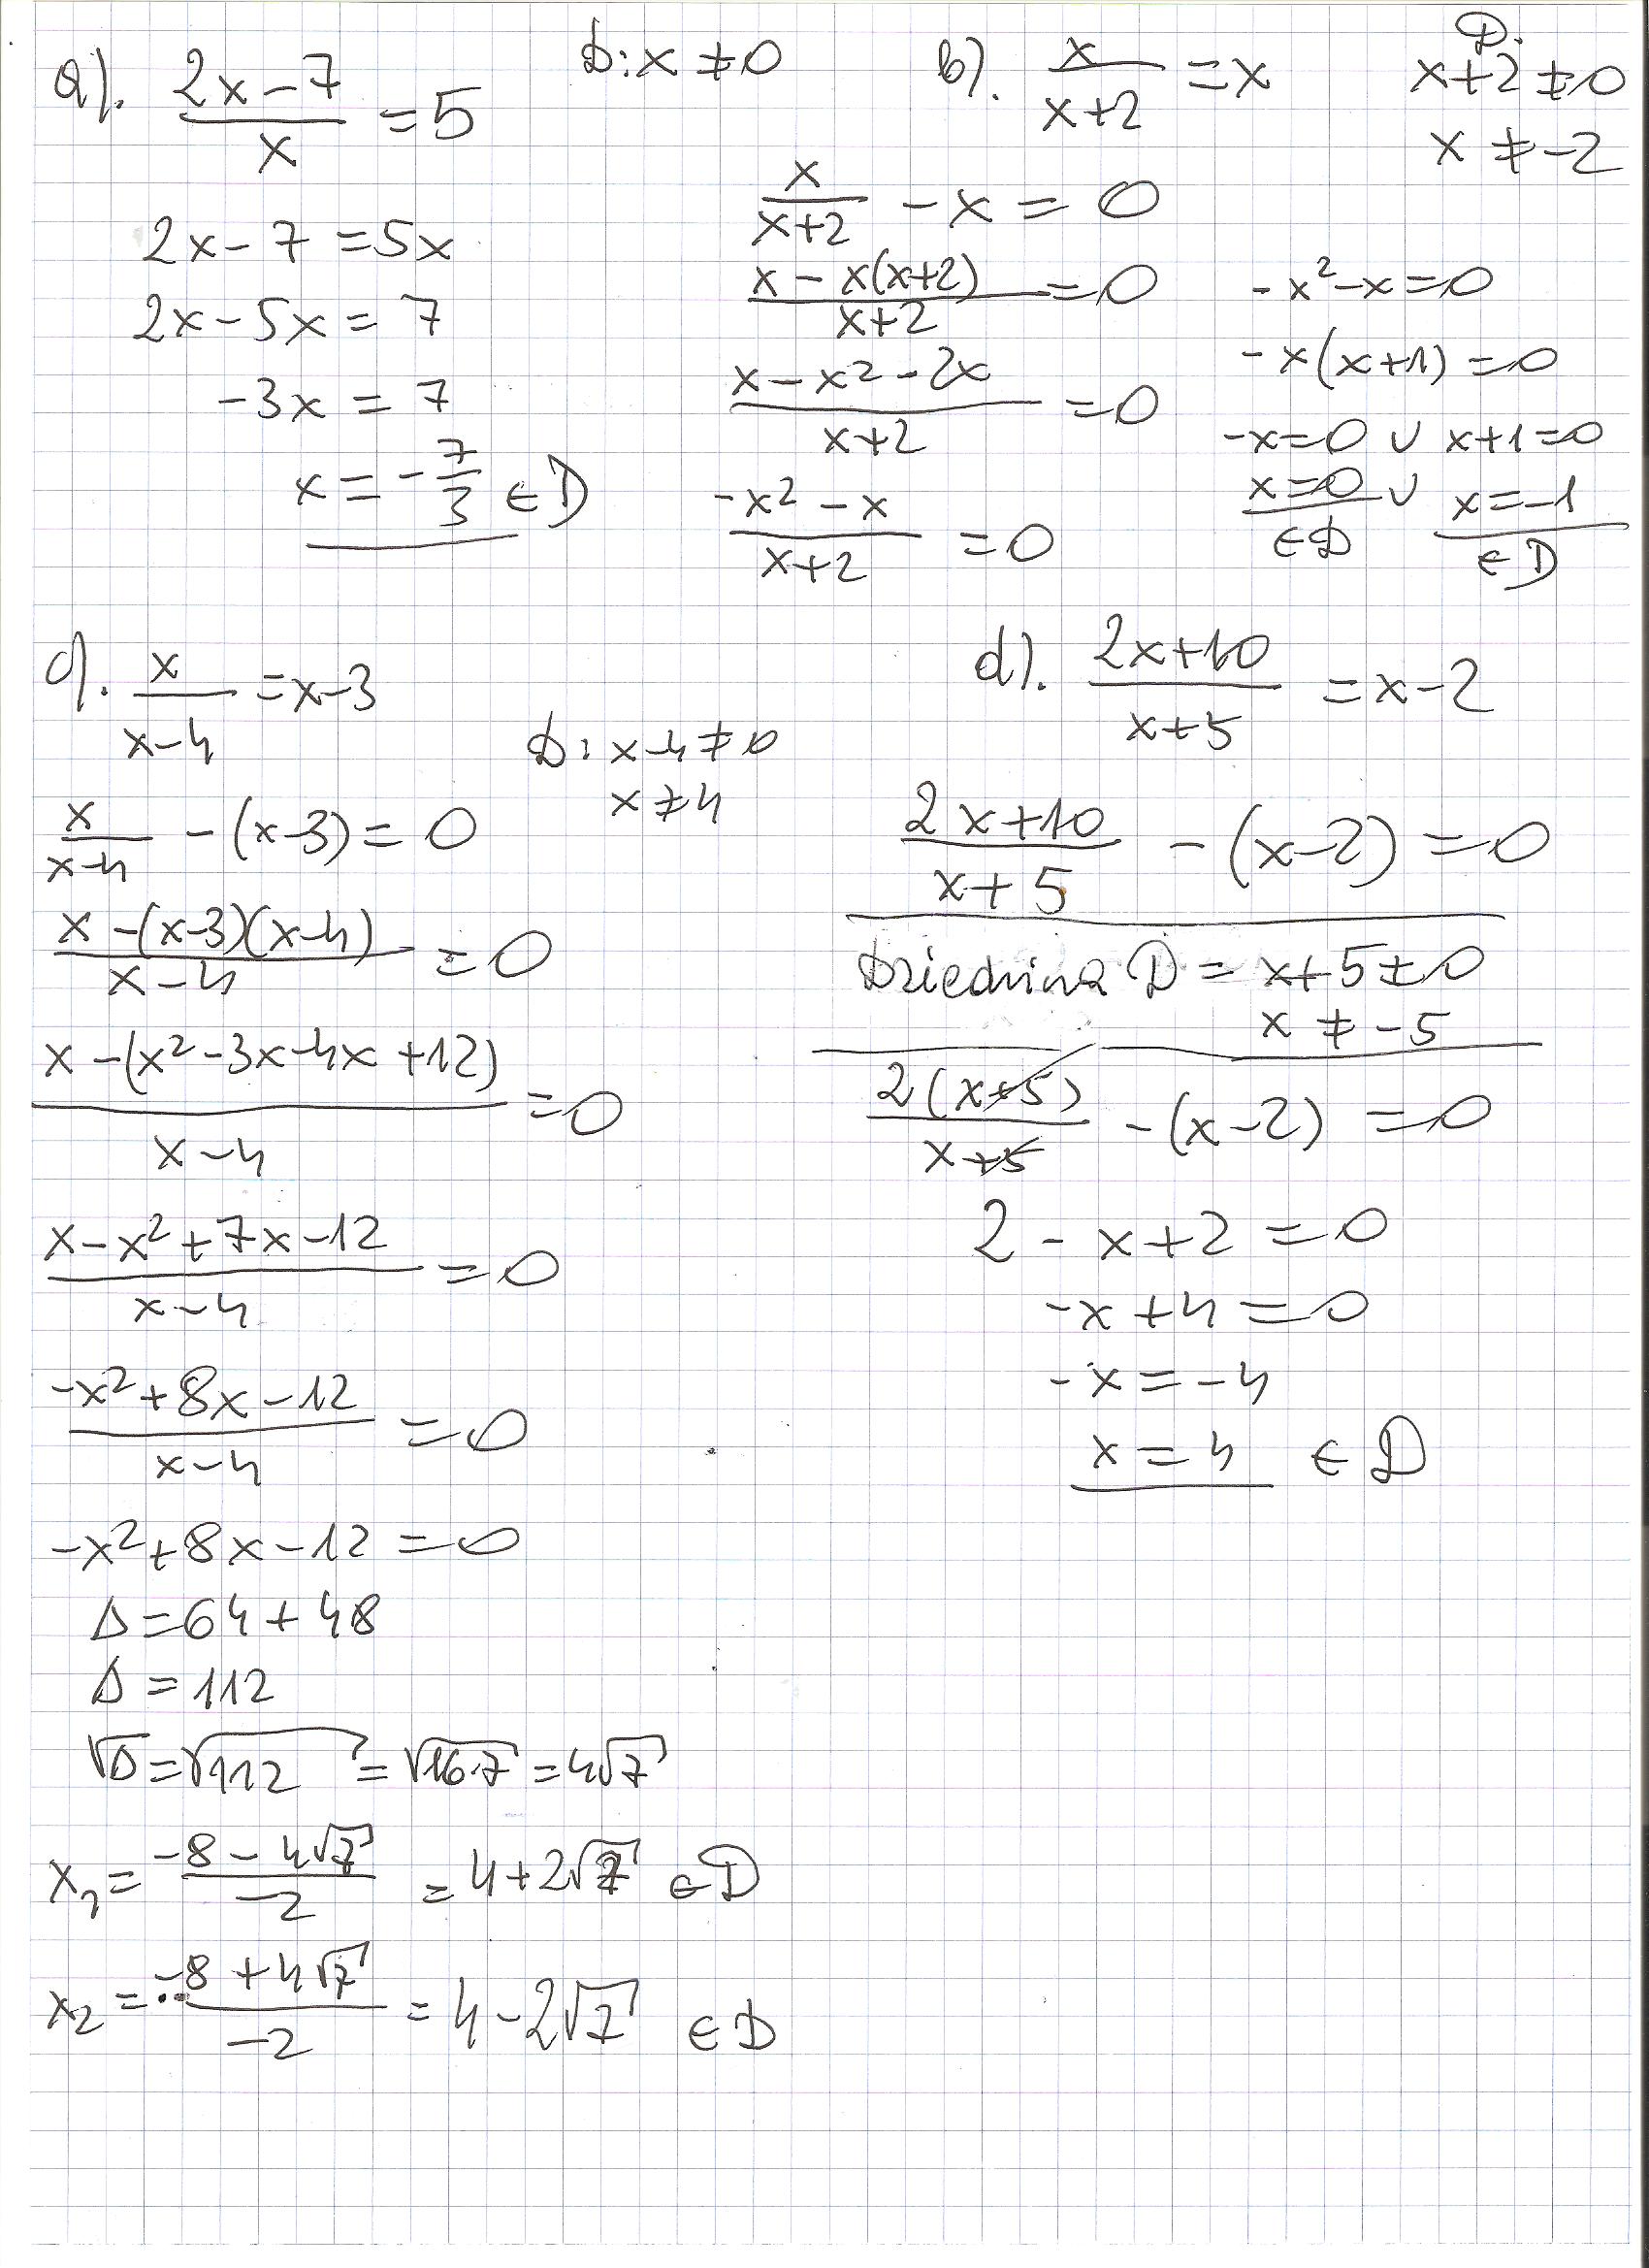 a). (2x-7)/x = 5   D: x ≠ 0
2x-7 = 5x
2x-5x = 7
-3x = 7
x = -7/3 ∈ D
b). x/(x+2) = x   D:
x+2 ≠ 0
x ≠ -2
x/(x+2) - x = 0
(x - x(x+2))/(x+2) = 0
(x - x² - 2x)/(x+2) = 0
(-x² - x)/(x+2) = 0
-x² - x = 0
-x(x+1) = 0
-x = 0 ∪ x+1 = 0
x = 0 ∪ x = -1
∈ D   ∈ D
c). x/(x-4) = x-3
D: x-4 ≠ 0
x ≠ 4
x/(x-4) - (x-3) = 0
(x - (x-3)(x-4))/(x-4) = 0
(x - (x² - 3x - 4x + 12))/(x-4) = 0
(x - x² + 7x - 12)/(x-4) = 0
(-x² + 8x - 12)/(x-4) = 0
-x² + 8x - 12 = 0
Δ = 64 + 48
Δ = 112
√Δ = √112 = √16·7 = 4√7
x₁ = (-8 - 4√7)/-2 = 4 + 2√7 ∈ D
x₂ = (-8 + 4√7)/-2 = 4 - 2√7 ∈ D
d). (2x+10)/(x+5) = x-2
(2x+10)/(x+5) - (x-2) = 0
Dziedzina D = x+5 ≠ 0
x ≠ -5
2(x+5)/(x+5) - (x-2) = 0
2 - x + 2 = 0
-x + 4 = 0
-x = -4
x = 4 ∈ D